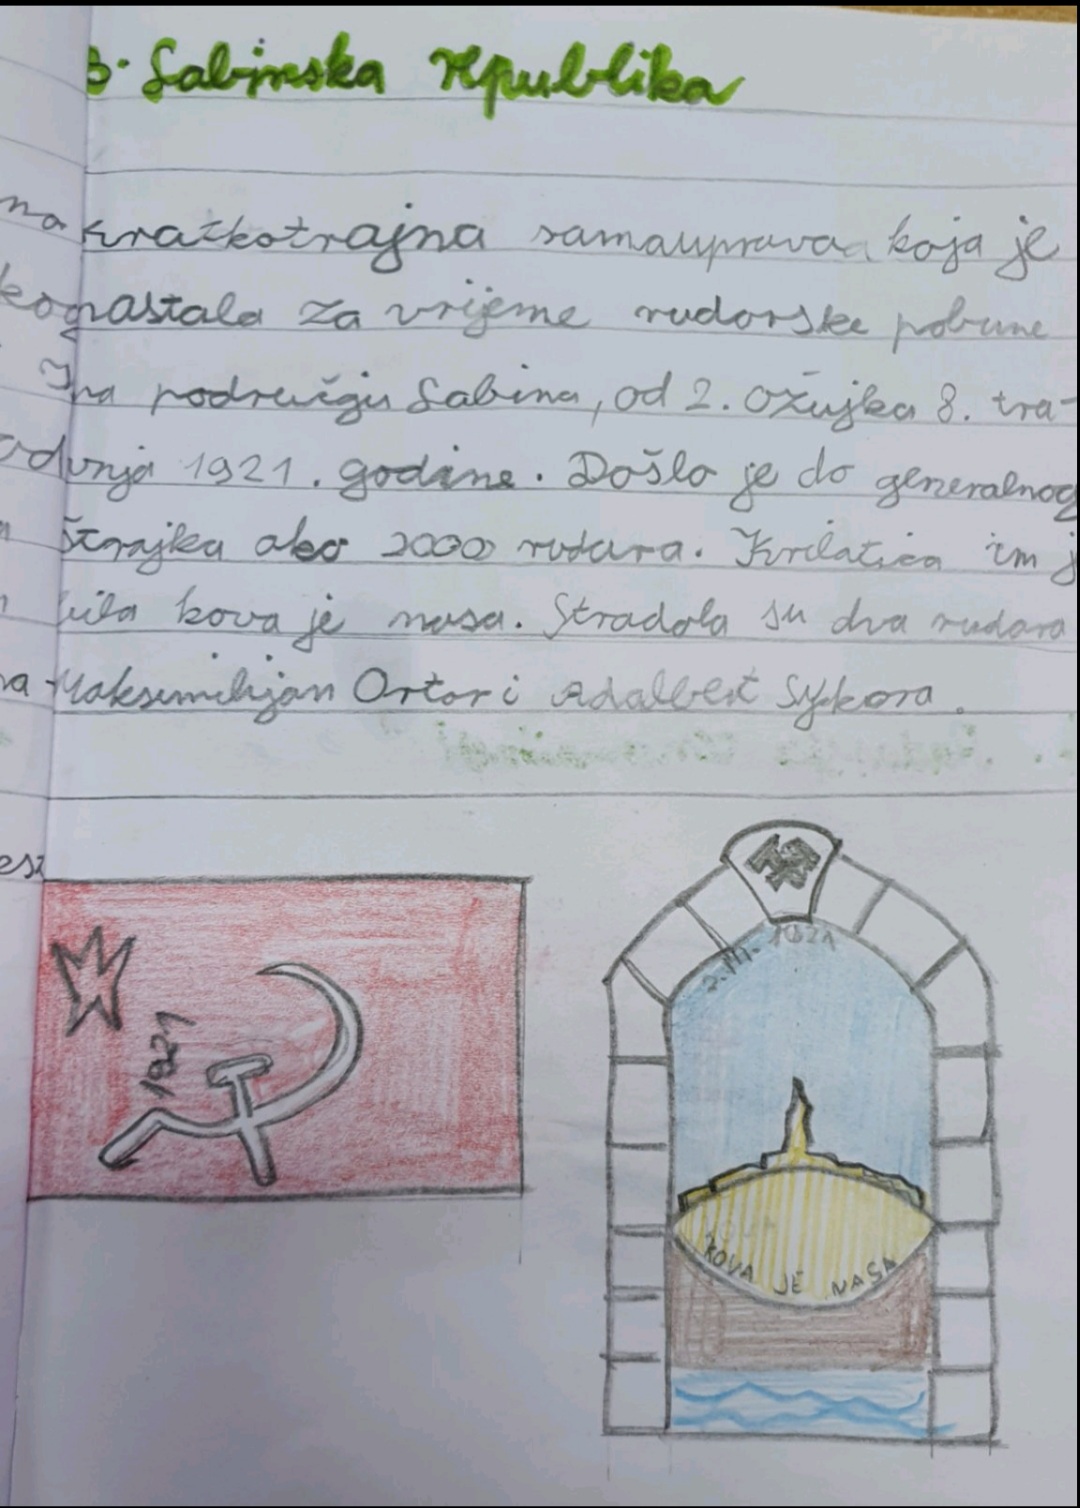 3. Labinska republika
kratkotrajna samouprava koja je
nastala za vrijeme rudarske pobune
na području Labina, od 2. ožujka 8. tra-
vnja 1921. godine. Došlo je do generalnog
štrajka oko 2000 rudara. Krilatica im j
bila kova je nasa. Stradala su dva rudara
Maksimilijan Ortar i Adalbert Sykora.
1921
2. III. 1921
KOVA JE NASA